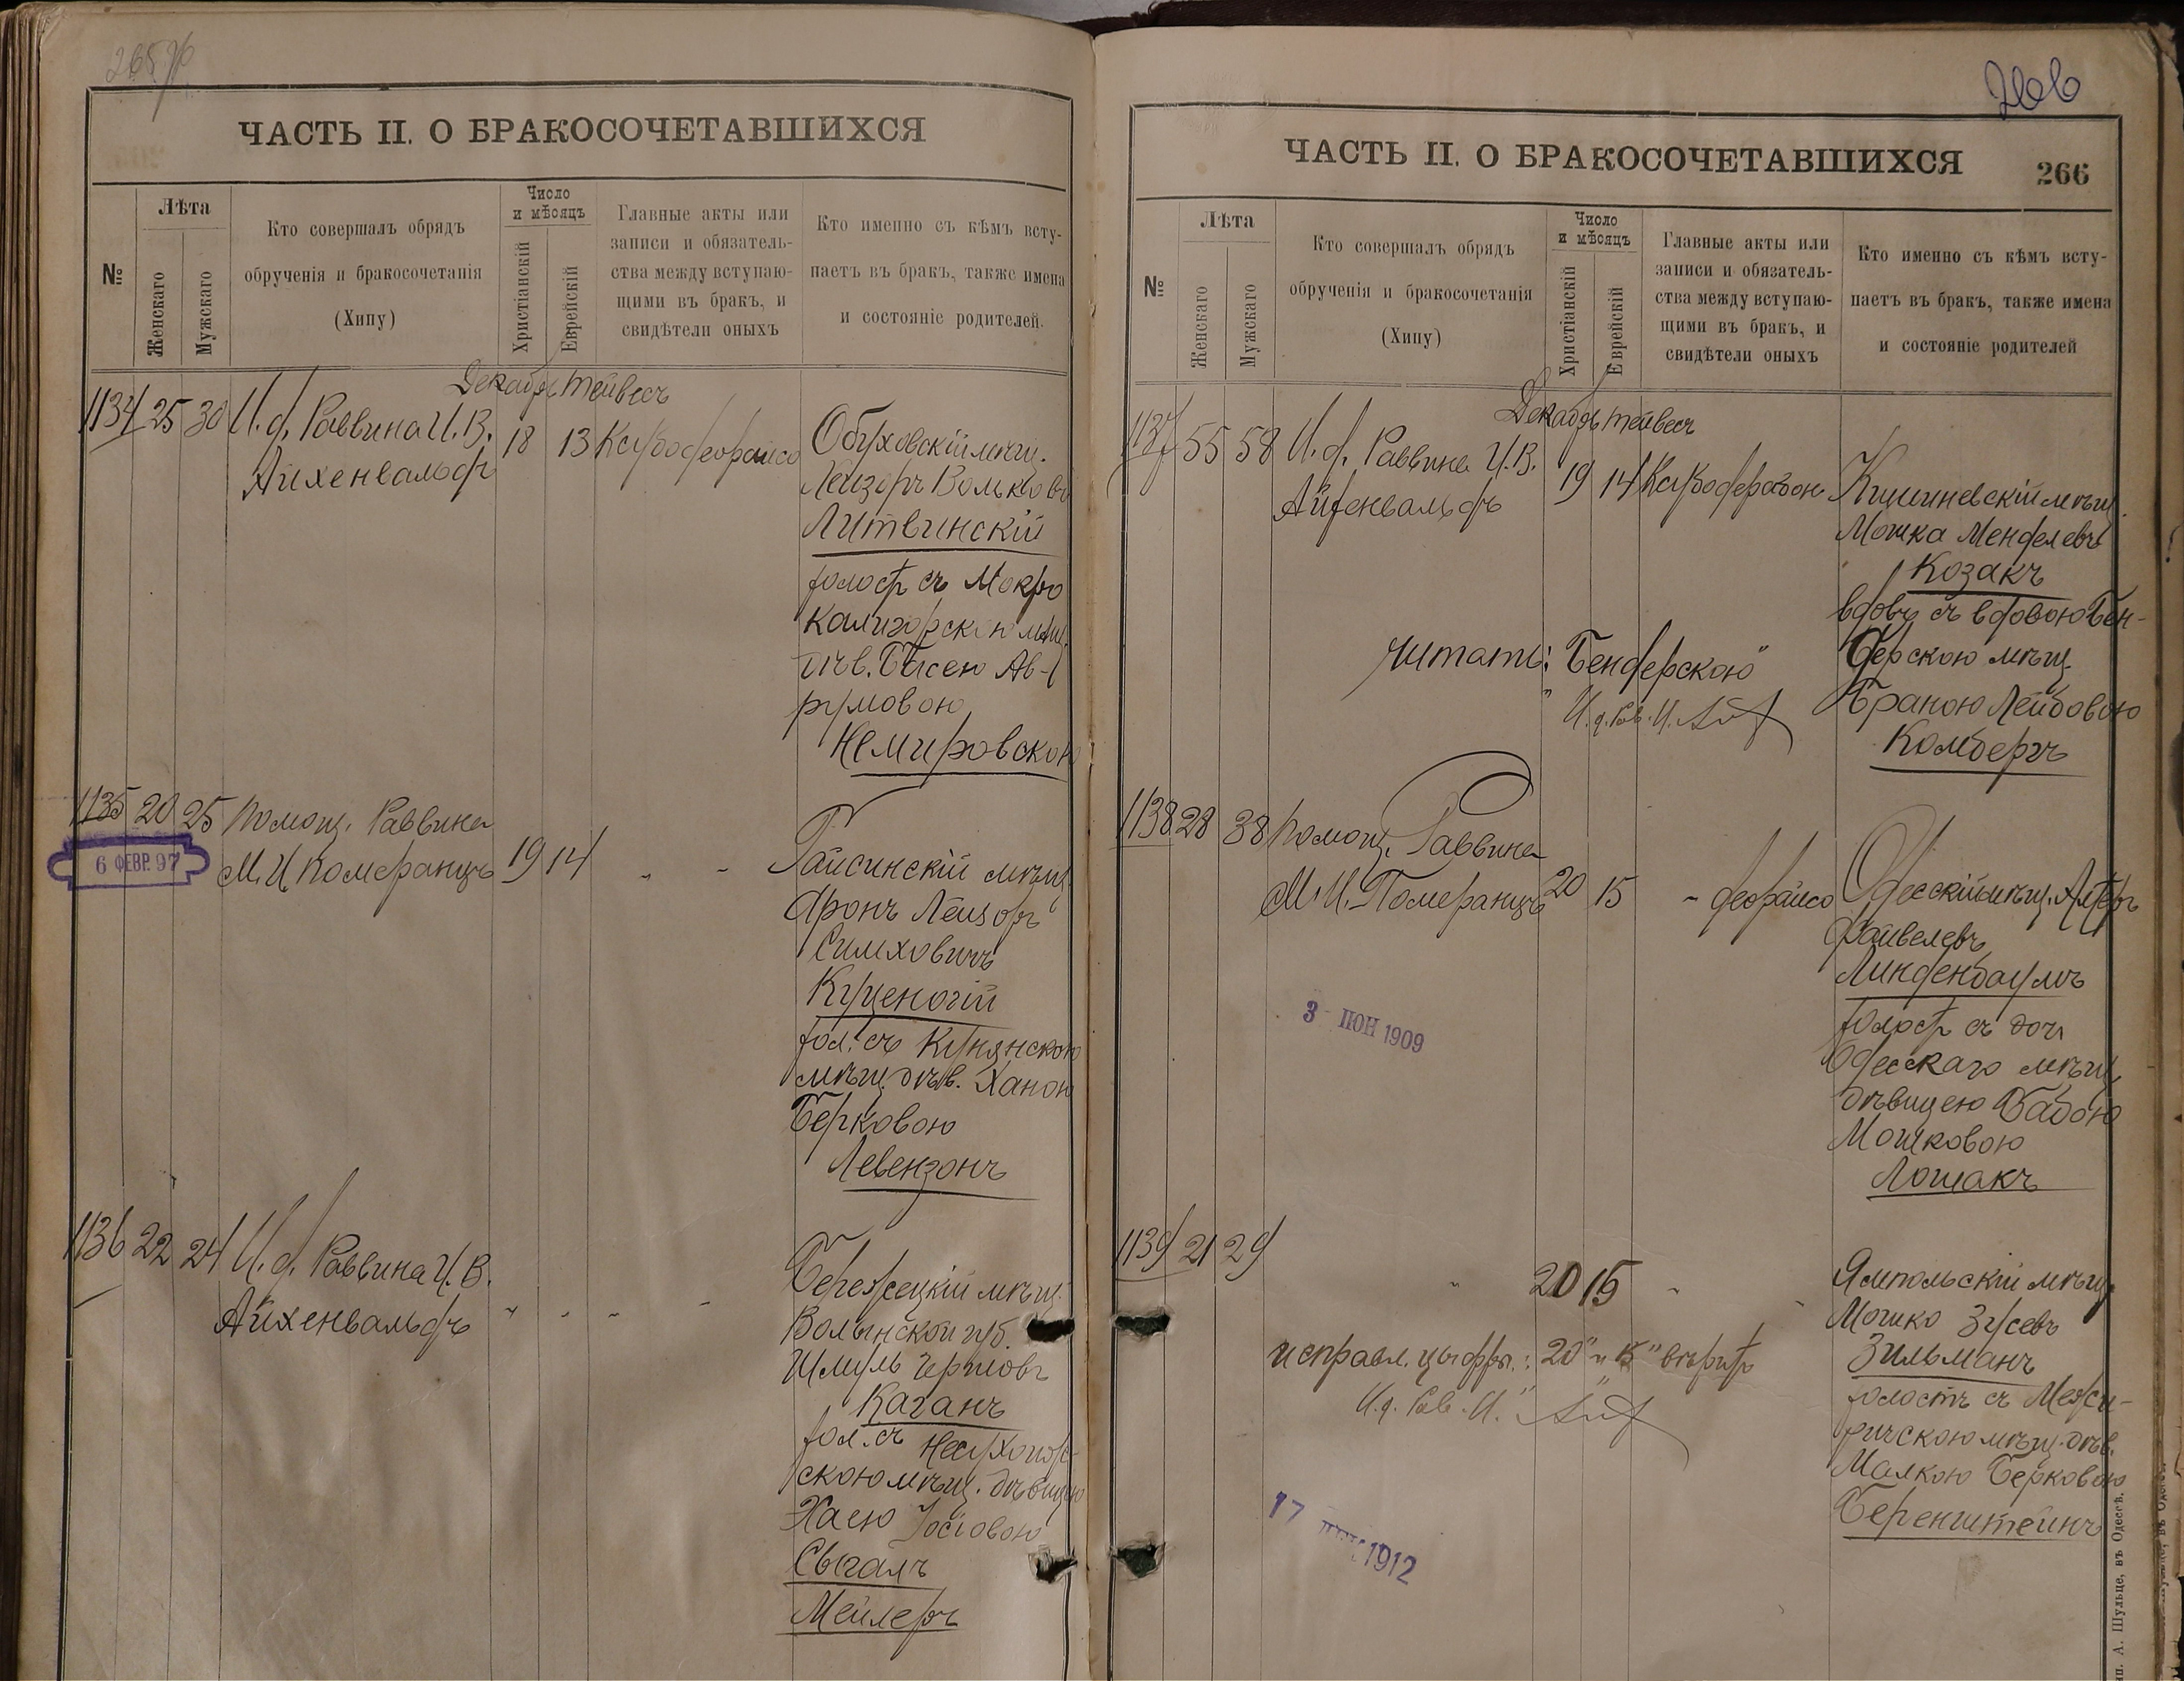 ЧАСТЬ II. О БРАКОСОЧЕТАВШИХСЯ
№
Лѣта
Женскаго
Мужскаго
Кто совершалъ обрядъ
обрученія и бракосочетанія
(Хипу)
Число
и мѣсяцъ
Христіанскій
Еврейскій
Главные акты или
записи и обязатель-
ства между вступаю-
щими въ бракъ, и
свидѣтели оныхъ
Кто именно съ кѣмъ всту-
паетъ въ бракъ, также имена
и состояніе родителей.
Декабрь Тейвесъ
1134 25 30 И. д. Раввина И. В.
Айхенвальдъ
18 13
Обуховскій мѣщ.
Лейзеръ Вольковъ
Литвинскій
холост съ Мокро
Калигорскою мѣщ.
дѣв. Бысею Ав-
румовою
Немировскою
1135 20 25 Помощ. Раввина
М. И. Померанцъ 19 14 " "
6 ФЕВР. 97
Гайсинскій мѣщ.
Аронъ Лейзоръ
Симховичъ
Куценогій
хол. съ Кунянскою
мѣщ. дѣв. Ханою
Берковою
Левензонъ
1136 22 24 И. д. Раввина И. В.
Айхенвальдъ " " " "
Бережецкій мѣщ.
Волынской губ.
Шмуль
Каганъ
хол. съ
скою мѣщ. дѣвицею
Хаею Іосіовою
Сыгалъ
Мейлеръ
ЧАСТЬ II. О БРАКОСОЧЕТАВШИХСЯ
266
№
Лѣта
Женскаго
Мужскаго
Кто совершалъ обрядъ
обрученія и бракосочетанія
(Хипу)
Число
и мѣсяцъ
Христіанскій
Еврейскій
Главные акты или
записи и обязатель-
ства между вступаю-
щими въ бракъ, и
свидѣтели оныхъ
Кто именно съ кѣмъ всту-
паетъ въ бракъ, также имена
и состояніе родителей
Декабрь Тейвесъ
1137 55 58 И. д. Раввина И. В.
Айхенвальдъ
19 14
Кишиневскій мѣщ.
Мошка Менделевъ
Козакъ
вдовъ съ вдовою Бен-
дерскою мѣщ.
Браною Лейбовою
Комбергъ
читать: "Бендерскою"
И. д. Рав. И.
1138 28 38 Помощ. Раввина
М. И. Померанцъ 20 15
3 ИЮН 1909
Одесскій мѣщ. Алтеръ
Файвелевъ
Линденбаумъ
холост съ доч
Одесскаго мѣщ.
дѣвицею Бабою
Мошковою
Лошакъ
1139 21 29
" 20 15 "
исправл. цыфры: "20" и "15" вѣрить
И. д. Рав. И.
1912
Ямпольскій мѣщ.
Мошко Зусевъ
Зильманъ
холостъ съ Межи-
ричскою мѣщ. дѣв.
Малкою Берковою
Беренштейнъ
А. Шульце, въ Одессѣ.